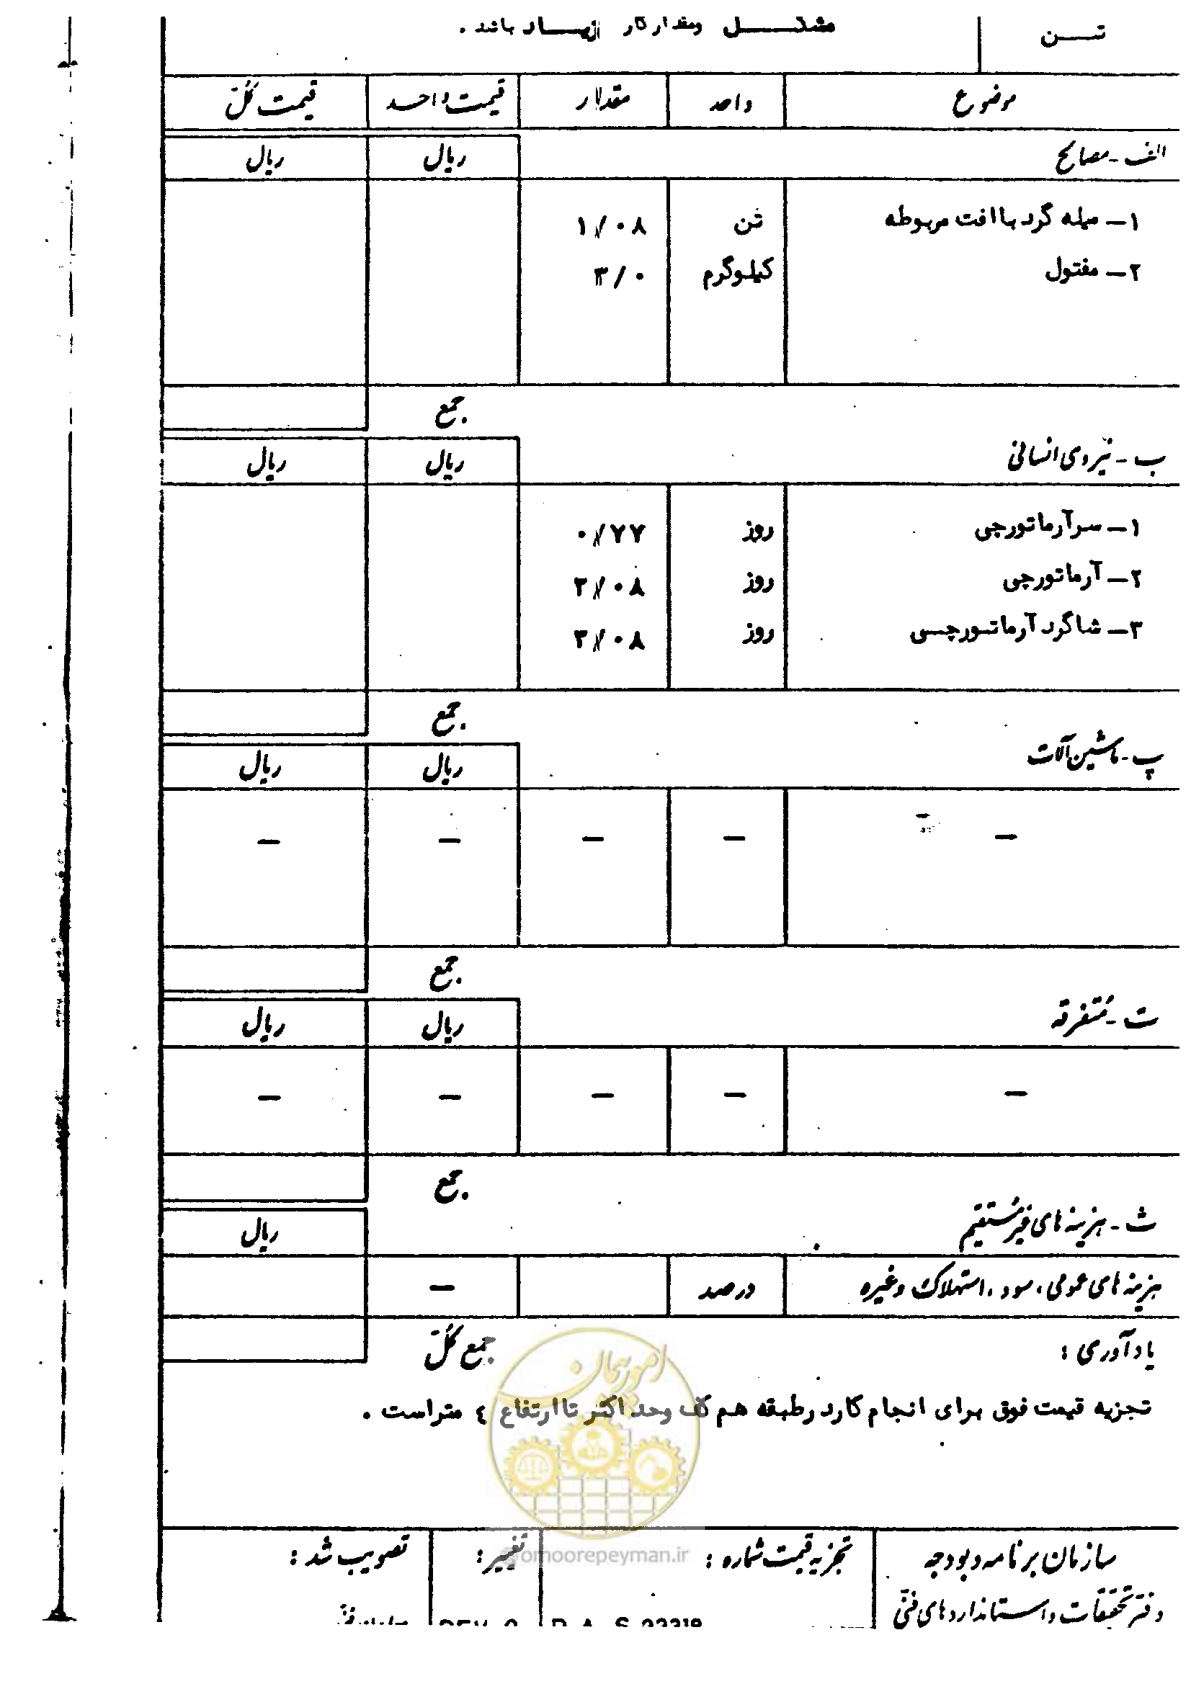 تــن مشکــــل ومقدارکار زیــــاد باشد .
موضوع واحد مقدار قیمت واحد قیمت کل
الف - مصالح ریال ریال
۱ـ میله گرد باافت مربوطه تن ۱/۰۸
۲ـ مفتول کیلوگرم ۳/۰
جمع
ب - نیروی انسانی ریال ریال
۱ـ سرآرماتورچی روز ۰/۷۷
۲ـ آرماتورچی روز ۳/۰۸
۳ـ شاگرد آرماتــورچــی روز ۳/۰۸
جمع
پ - ماشین آلات ریال ریال
— — — — —
جمع
ت - متفرقه ریال ریال
— — — — —
جمع
ث - هزینه های غیرمستقیم ریال
هزینه های عمومی ، سود ، استهلاک وغیره درصد —
یادآوری : جمع کل
تجزیه قیمت فوق برای انجام کاردرطبقه هم کف وحداکثر تاارتفاع ٤ متراست .
امور پیمان
omoorepeyman.ir
سازمان برنامه وبودجه تجزیه قیمت شماره : تغییر : تصویب شد :
دفتر تحقیقات واستانداردهای فنی